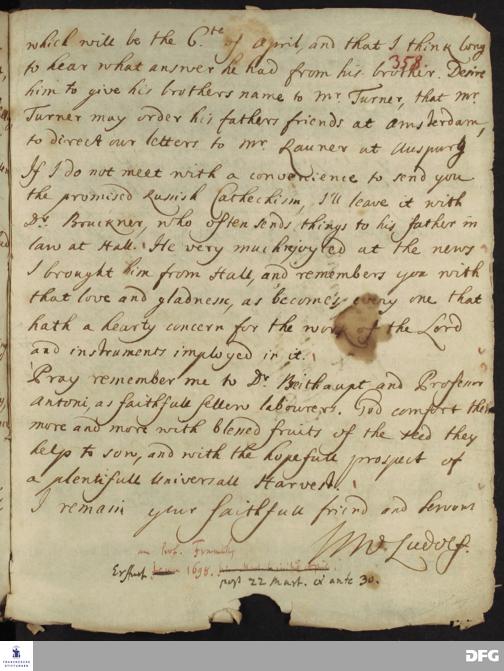 which will be the 6.te of April, and that I think long
358.
to hear what answer he had from his brother. Desire
him to give his brothers name to Mr. Turner, that Mr.
Turner may order his fathers friends at Amsterdam,
to direct our letters to Mr Rauner at Auspurg
If I do not meet with a convenience to send you
the promised Russish Catechism, I'll leave it with
Dr. Bruckner, who often sends things to his father in
law at Hall. He very much rejoyced at the news
I brought him from Hall, and remembers you with
that love and gladness, as becomes every one that
hath a hearty concern for the work of the Lord
and instruments imployed in it.
Pray remember me to Dr. Breithaupt and Professor
Antoni, as faithfull fellow labourers. God comfort them
more and more with blessed fruits of the seed they
help to sow, and with the hopefull prospect of
a plentifull Universall Harvest.
I remain your faithfull friend and servant
Ludolf.
an Prof.
Erffurt. 1698.
post 22 Mart. et ante 30.
FRANCKESCHE STIFTUNGEN
DFG